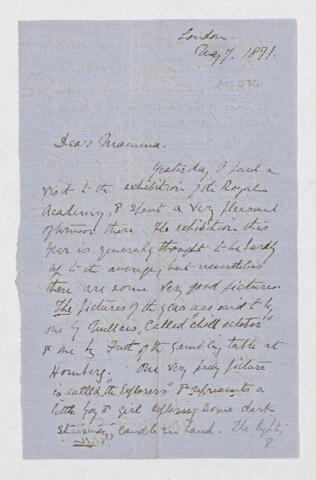 London
May 7. 1871.
Dear Mamma.
Yesterday, I paid a
visit to the exhibition of the Royal
Academy, & spent a very pleasant
afternoon there. The exhibition this
year is generally thought to be hardly
up to the average, but nevertheless
there are some very good pictures.
The pictures of the year are said to be
one by Millais, called "Chill october"
& one by Frith of the gambling table at
Homberg. One very pretty picture
is called "the Explorers" & represents a
little boy & girl exploring some dark
stairway, candle in hand. The light,